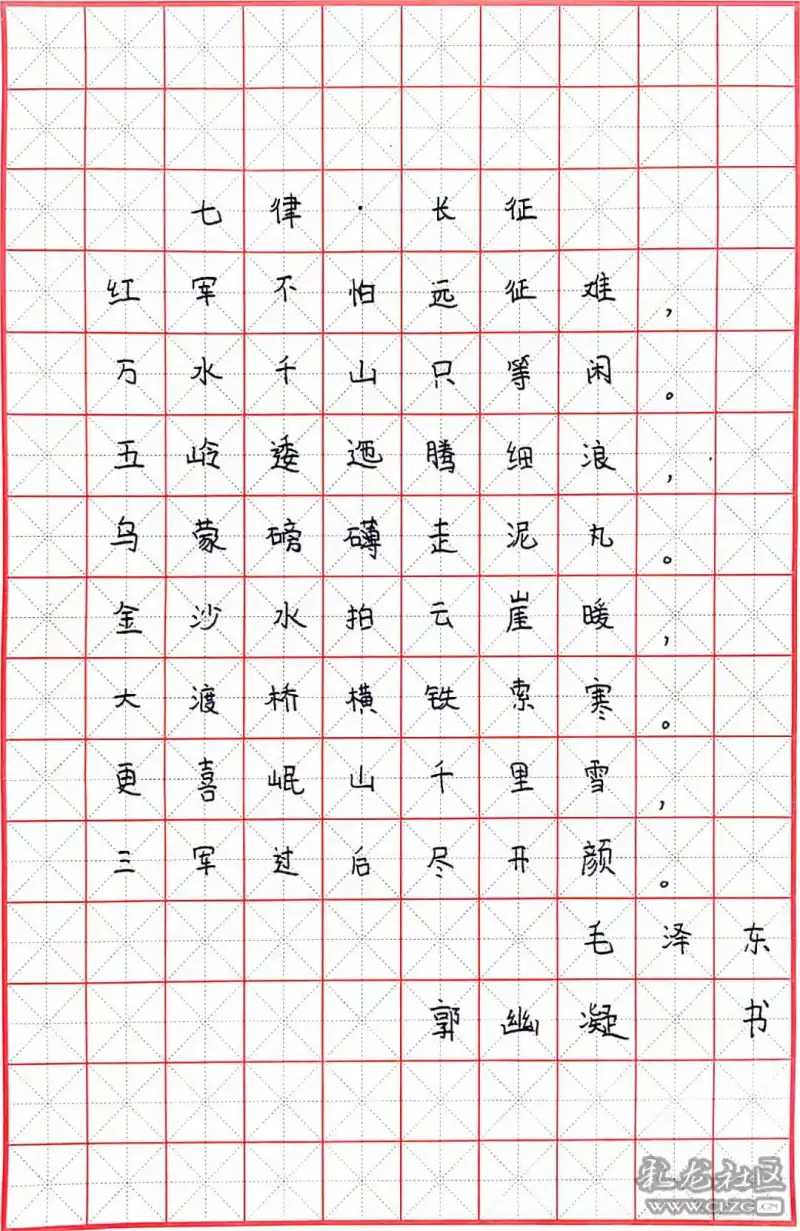 七律·长征
红军不怕远征难，
万水千山只等闲。
五岭逶迤腾细浪，
乌蒙磅礴走泥丸。
金沙水拍云崖暖，
大渡桥横铁索寒。
更喜岷山千里雪，
三军过后尽开颜。
毛泽东
郭幽凝 书
化龙社区
www.clzg.cn